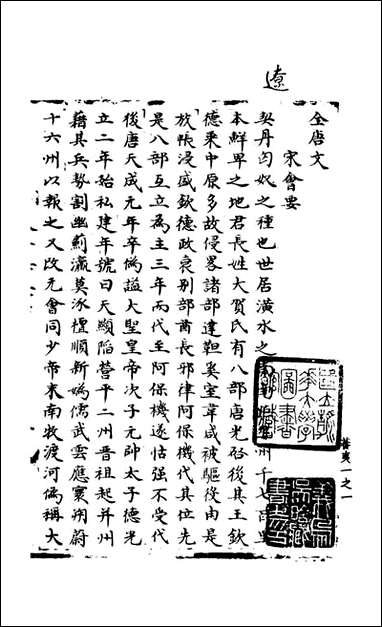 遼
全唐文
宋會要
契丹匈奴之種也世居潢水之南 州千七百里
本鮮卑之地君長姓大賀氏有八部唐光啓後其王欽
德乘中原多故侵畧諸部達靼奚室韋咸被驅役由是
族帳浸盛欽德政衰別部酋長耶律阿保機代其位先
是八部互立為主三年而代至阿保機遂怙强不受代
後唐天成元年卒偽謚大聖皇帝次子元帥太子德光
立二年始私建年號曰天顯陷營平二州晉祖起并州
藉其兵勢割幽薊瀛莫涿檀順新媯儒武雲應寰朔蔚
十六州以報之又改元會同少帝末南牧渡河偽稱大
蕃夷一之一
大學
圖書